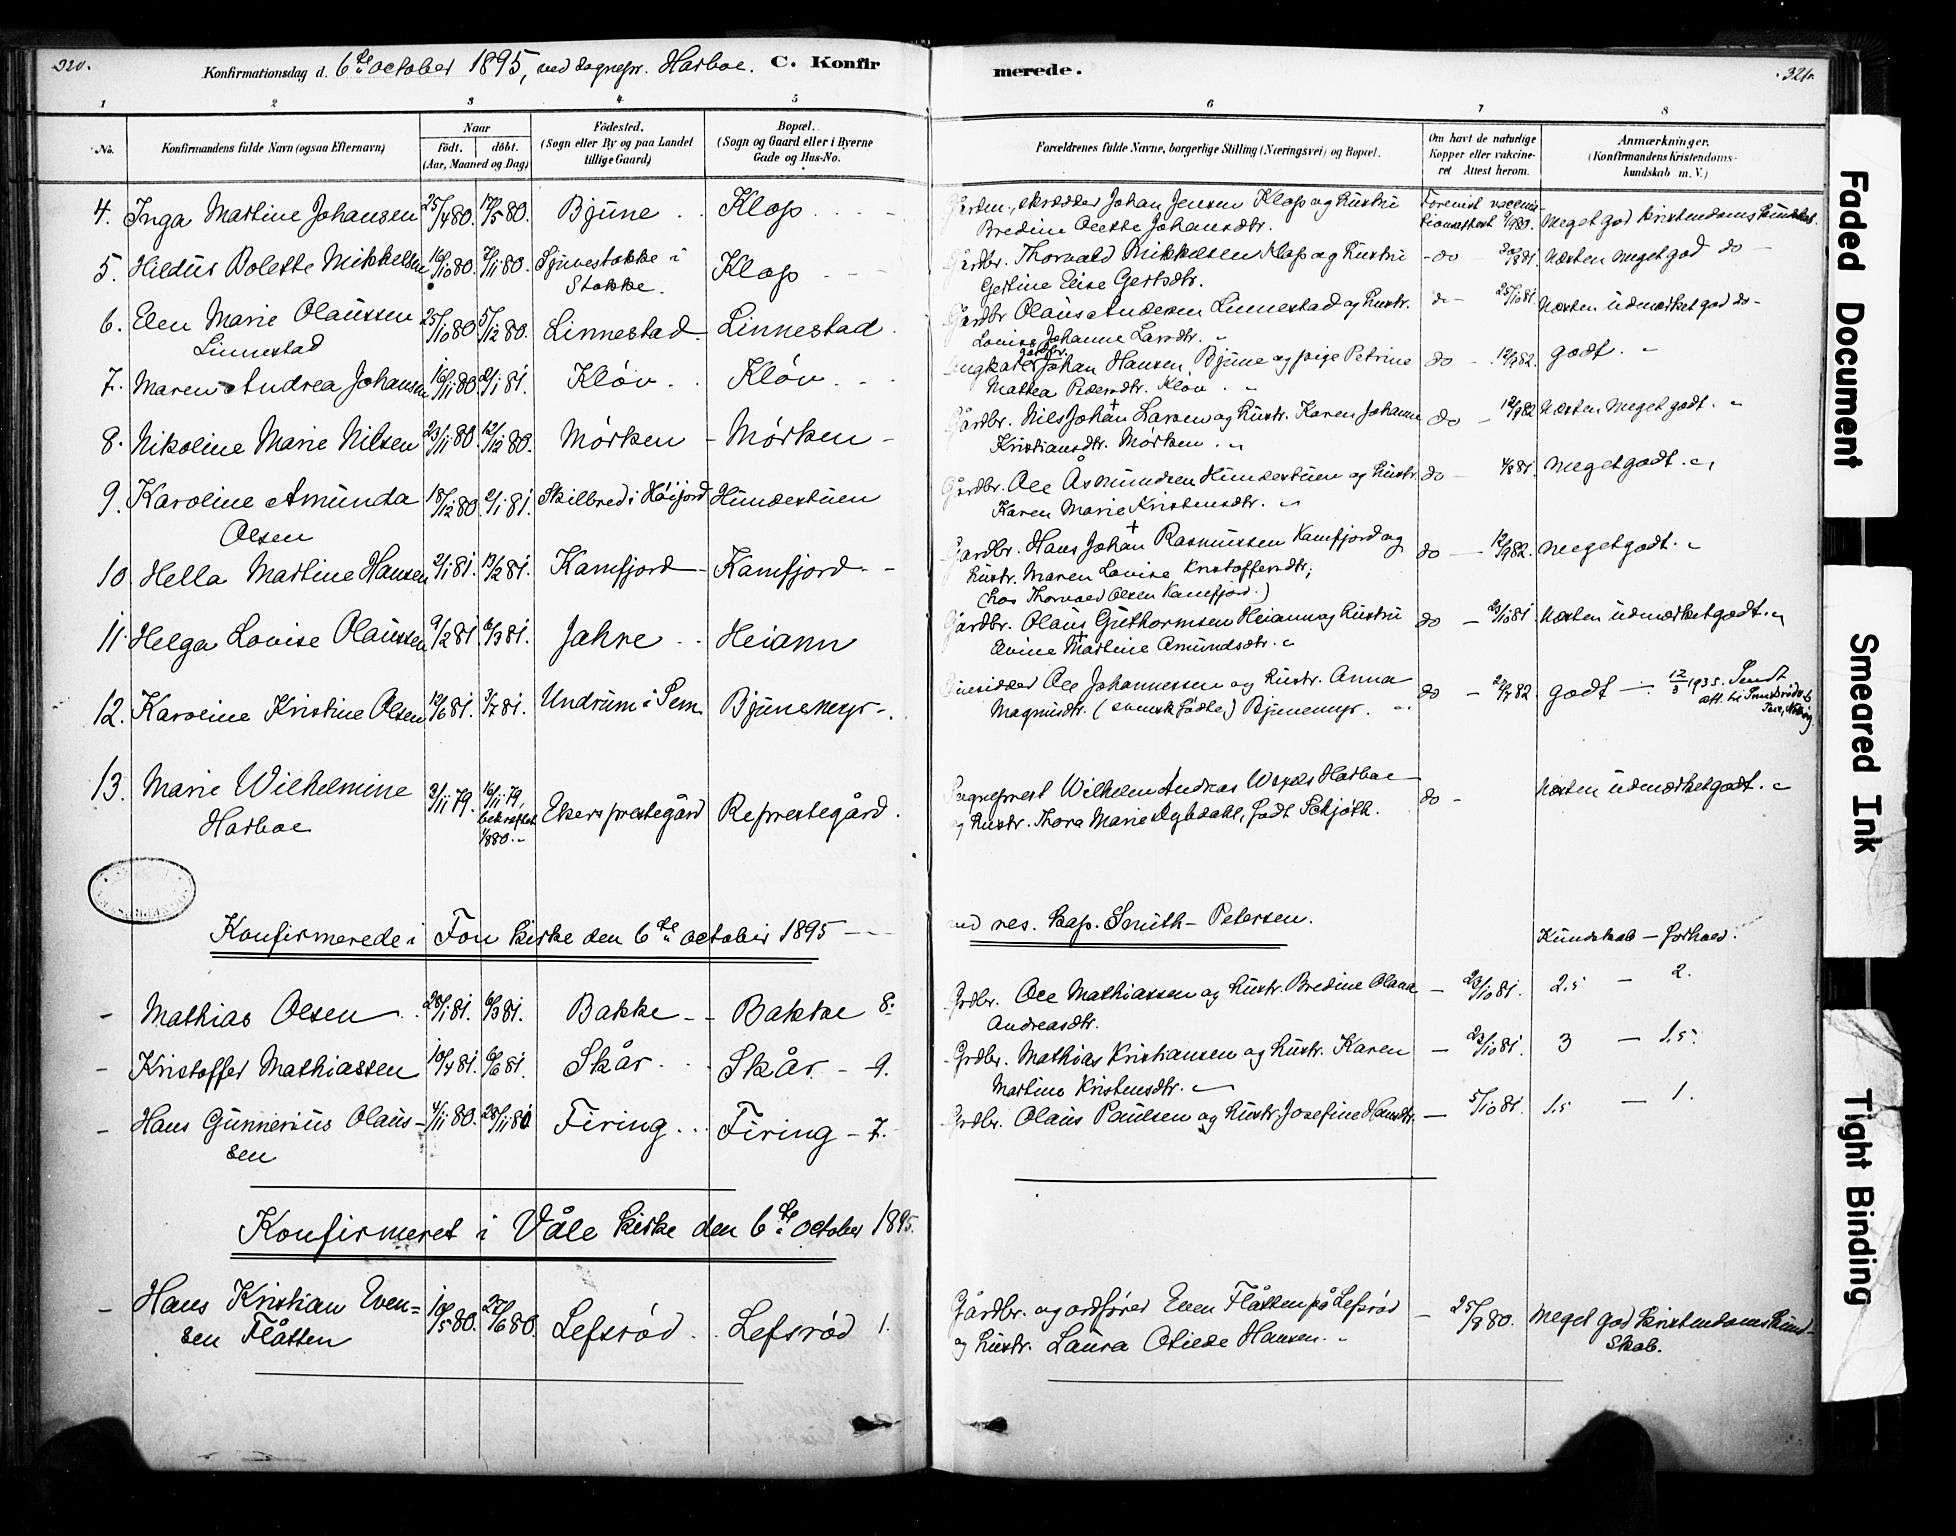 320.
Konfirmationsdag d. 6te october 1895, ved sognepr. Harboe. C. Konfir
merede.
321.
1 2 3 4 5 6 7 8
No.
Konfirmandens fulde Navn (ogsaa Efternavn)
Naar
Födt. döbt.
(Aar, Maaned og Dag)
Födested.
(Sogn eller By og paa Landet
tillige Gaard)
Bopæl.
(Sogn og Gaard eller i Byerne
Gade og Hus-No.
Forældrenes fulde Navne, borgerlige Stilling (Næringsvei) og Bopæl.
Om havt de naturlige
Kopper eller vakcine-
ret Attest herom.
Anmærkninger.
(Konfirmandens Kristendoms-
kundskab m. V.)
4. Inga Martine Johansen 25/4 80. 17/5 80. Bjune Klop
skrædder Johan Jensen Klop og hustru
Bredine Olette Johansdtr.
Meget god kristendomskundskab
5. Hildus Bolette Mikkelsen 16/10 80. 7/11 80. i
Stokke. Klop
Gårdbr. Thorvald Mikkelsen Klop og hustru
Gertine Elise Gertsdtr.
do næsten meget god do
6. Elen Marie Olaussen
Linnestad 25/10 80 5/12 80. Linnestad Linnestad
Gårdbr Olaus Andersen Linnestad og hustr.
Lovise Johanne Larsdtr.
25/10 81. næsten udmærket god do
7. Maren Andrea Johansen 16/11 80 2/1 81. Kløv Kløv
Johan Hansen Bjune og pige Petrine
Mattea Pedersdtr. Kløv
do 12/9 82. godt.
8. Nikoline Marie Nilsen 23/11 80. 12/12 80. Mørken Mørken
Gårdbr. Nils Johan Larsen og hustr. Karen Johanne
Kristiansdtr. Mørken.
do 12/9 82 næsten meget godt.
9. Karoline Amunda
Olsen 18/12 80 2/1 81. Skilbred i Höijord Hundestuen
Gårdbr. Ole Åsmundsen Hundestuen og hustr.
Karen Marie Kristensdtr.
do meget godt.
10. Hella Martine Hansen 2/1 81. 13/2 81. Kamfjord Kamfjord
Gårdbr. Hans Johan Rasmussen Kamfjord og
hustr. Maren Lovise Kristoffersdtr;
(hos Thorvald Olsen Kamfjord.)
do 12/9 82. meget godt.
11. Helga Lovise Olaussen 9/2 81. 6/3 81. Jahre Heiann
Gårdbr. Olaus Guthormsen Heiann og hustru
Martine Amundsdtr.
do 23/10 81 næsten udmærket godt.
12. Karoline Kristine Olsen 12/6 81. 3/7 81. Undrum i Sem Bjunemyr
Ole Johannessen og hustr. Anna
Magnusdtr. (svensk fødte) Bjunemyr.
do godt 12/3 1935. Sendt
att. til
13. Marie Wilhelmine
Harboe 3/11 79. 16/11 79,
bekræftet
Ekers prestegård Represtegård.
Sogneprest Wilhelm Andreas Wexels Harboe
og hustr. Thora Marie Agledahl, født Schjøth.
do næsten udmærket godt.
Konfirmerede i Fon kirke den 6te october 1895
ved res. kap. Smith-Petersen.
Kundskab – forhold.
Mathias Olsen 28/1 81. 6/3 81. Bakke Bakke 8.
Grdbr. Ole Mathiassen og hustr. Bredine Olava
Andreasdtr.
23/10 81. 2.5 – 2.
Kristoffer Mathiassen 10/4 81. 6/6 81. Skår Skår – 9.
Grdbr. Mathias Kristiansen og hustr. Karen
Martine Kristensdtr.
23/10 81. 3 – 1.5
Hans Gunnerius Olaus-
sen 4/11 80. 28/11 80 Firing Firing – 7.
Grdbr. Olaus Paulsen og hustr. Josefine Hansdtr.
5/10 81. 1.5 – 1.
Konfirmeret i Våle kirke den 6te october 1895.
Hans Kristian Even=
sen Flåtten 10/5 80. 27/6 80. Lefsrød Lefsrød 1.
Gårdbr. og ordfører Even Flåtten på Lefsrød
og hustr. Laura Otilde Hansen.
25/9 80. Meget god kristendomskund-
skab.
Faded Document
Smeared Ink
Tight Binding